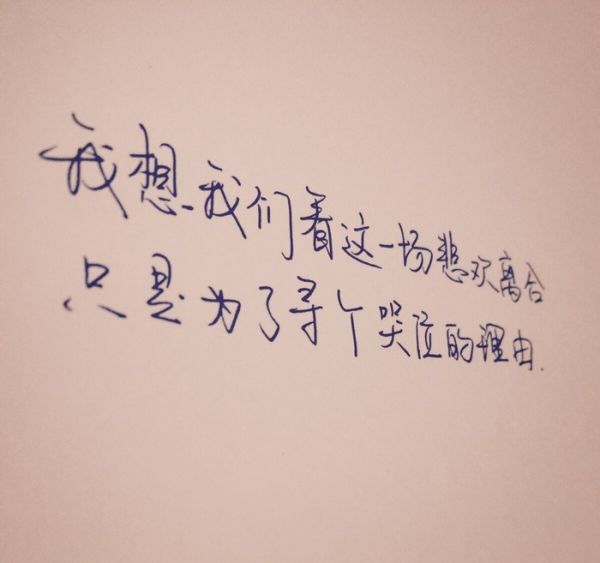 我想.我们看这一场悲欢离合
只是为了寻个哭泣的理由.